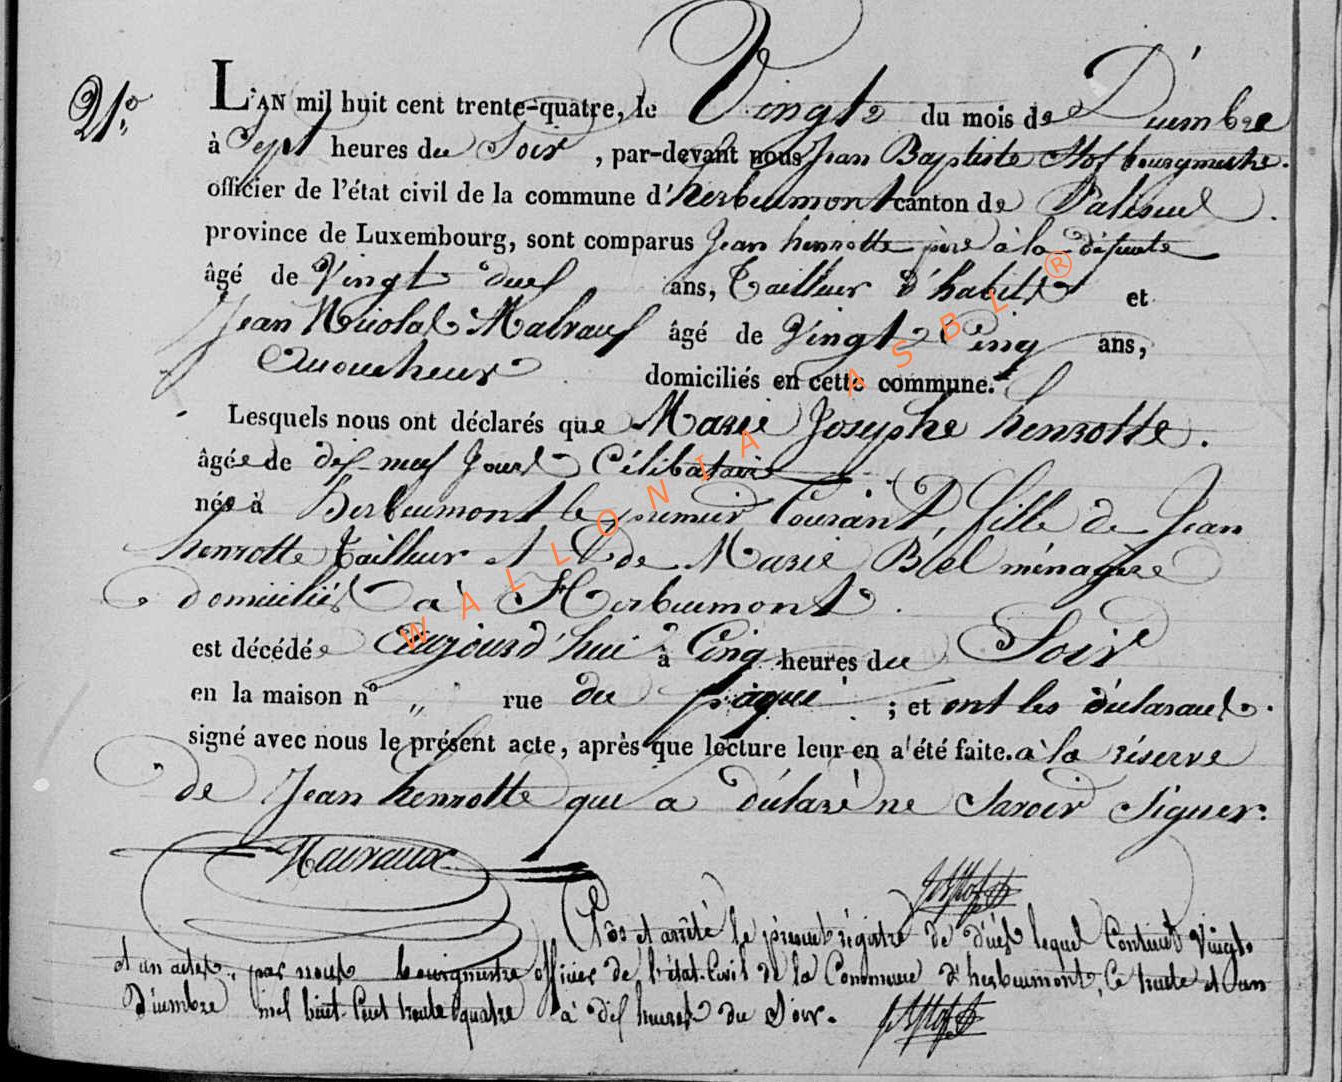 21°.
L'AN mil huit cent trente-quatre, le Vingte du mois de Décembre
à Sept heures du Soir, par-devant nous Jean Baptiste Stof bourgmestre.
officier de l'état civil de la commune d'herbeumont canton de Paliseul.
province de Luxembourg, sont comparus Jean henrotte père à la défunte
âgé de Vingt deux ans, Tailleur d'habits et
Jean Nicolas Malvaux âgé de Vingt Cinq ans,
domiciliés en cette commune.
Lesquels nous ont déclarés que Marie Josephe henrotte.
âgée de dix-neuf Jours Célibataire
née à Herbeumont le premier Courant, fille de Jean
henrotte Tailleur et de Marie Biel ménagère
domiciliés à Herbeumont.
est décédée aujourd'hui à Cinq heures du Soir
en la maison n° „ rue du paqui ; et ont les déclarants.
signé avec nous le présent acte, après que lecture leur en a été faite. à la réserve
de Jean henrotte qui a déclaré ne Savoir Signer.
Clos et arrêté le présent régistre de décès lequel Contient Vingt
et un actes, par nous bourgmestre officier de l'état-Civil de la Commune d'herbeumont, Ce trente et un
Décembre mil huit-Cent trente quatre à dix heures du Soir.
WALLONIA ASBL ®